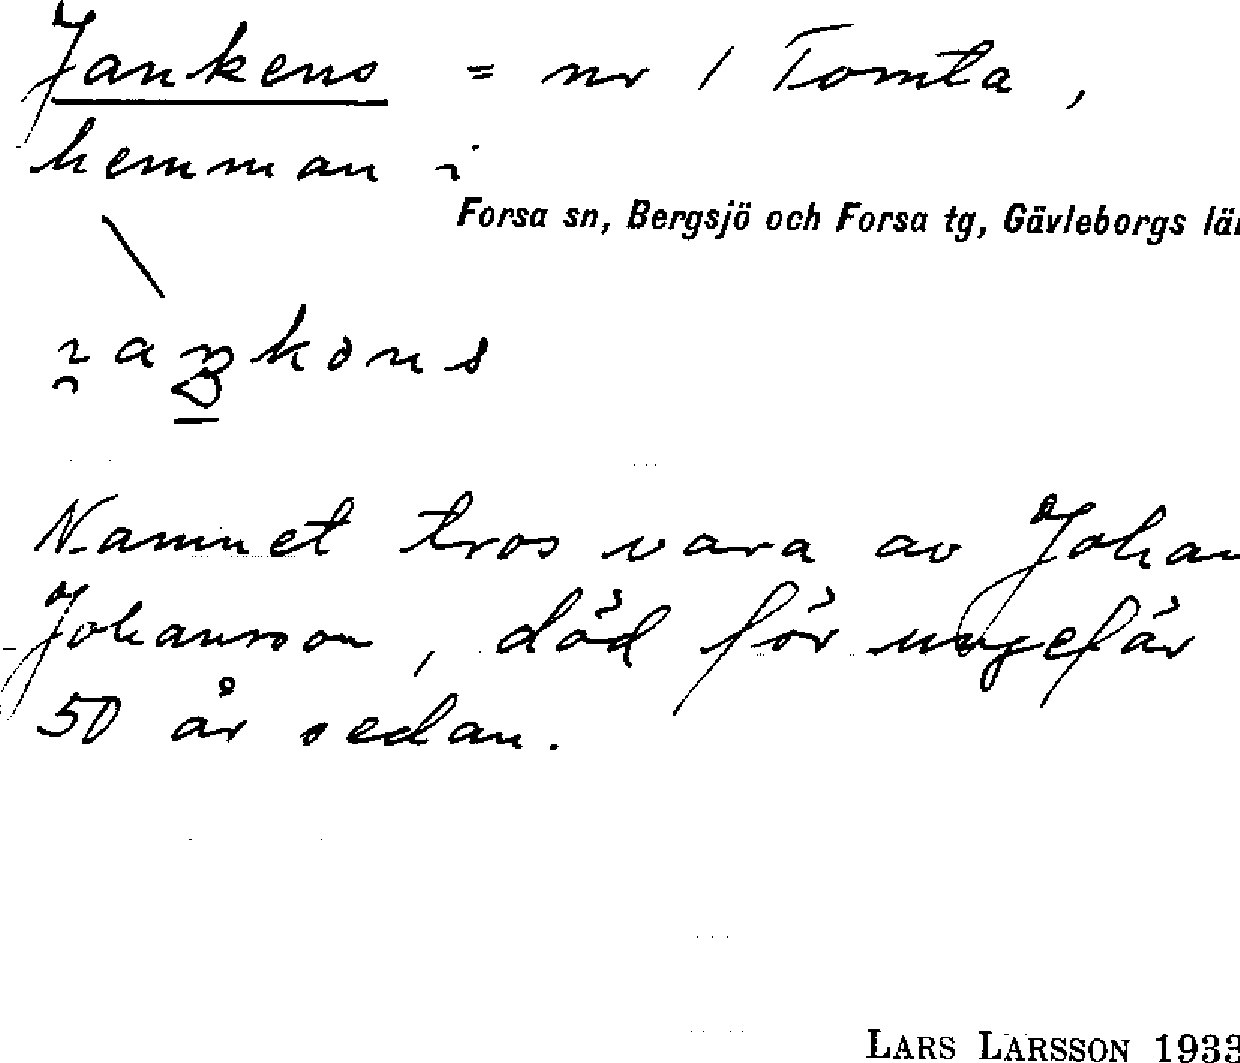 Jankens = nr 1 Tomta,
hemman i
Forsa sn, Bergsjö och Forsa tg, Gävleborgs län
Namnet tros vara av Johan
Johansson, död för ungefär
50 år sedan.
LARS LARSSON 1933